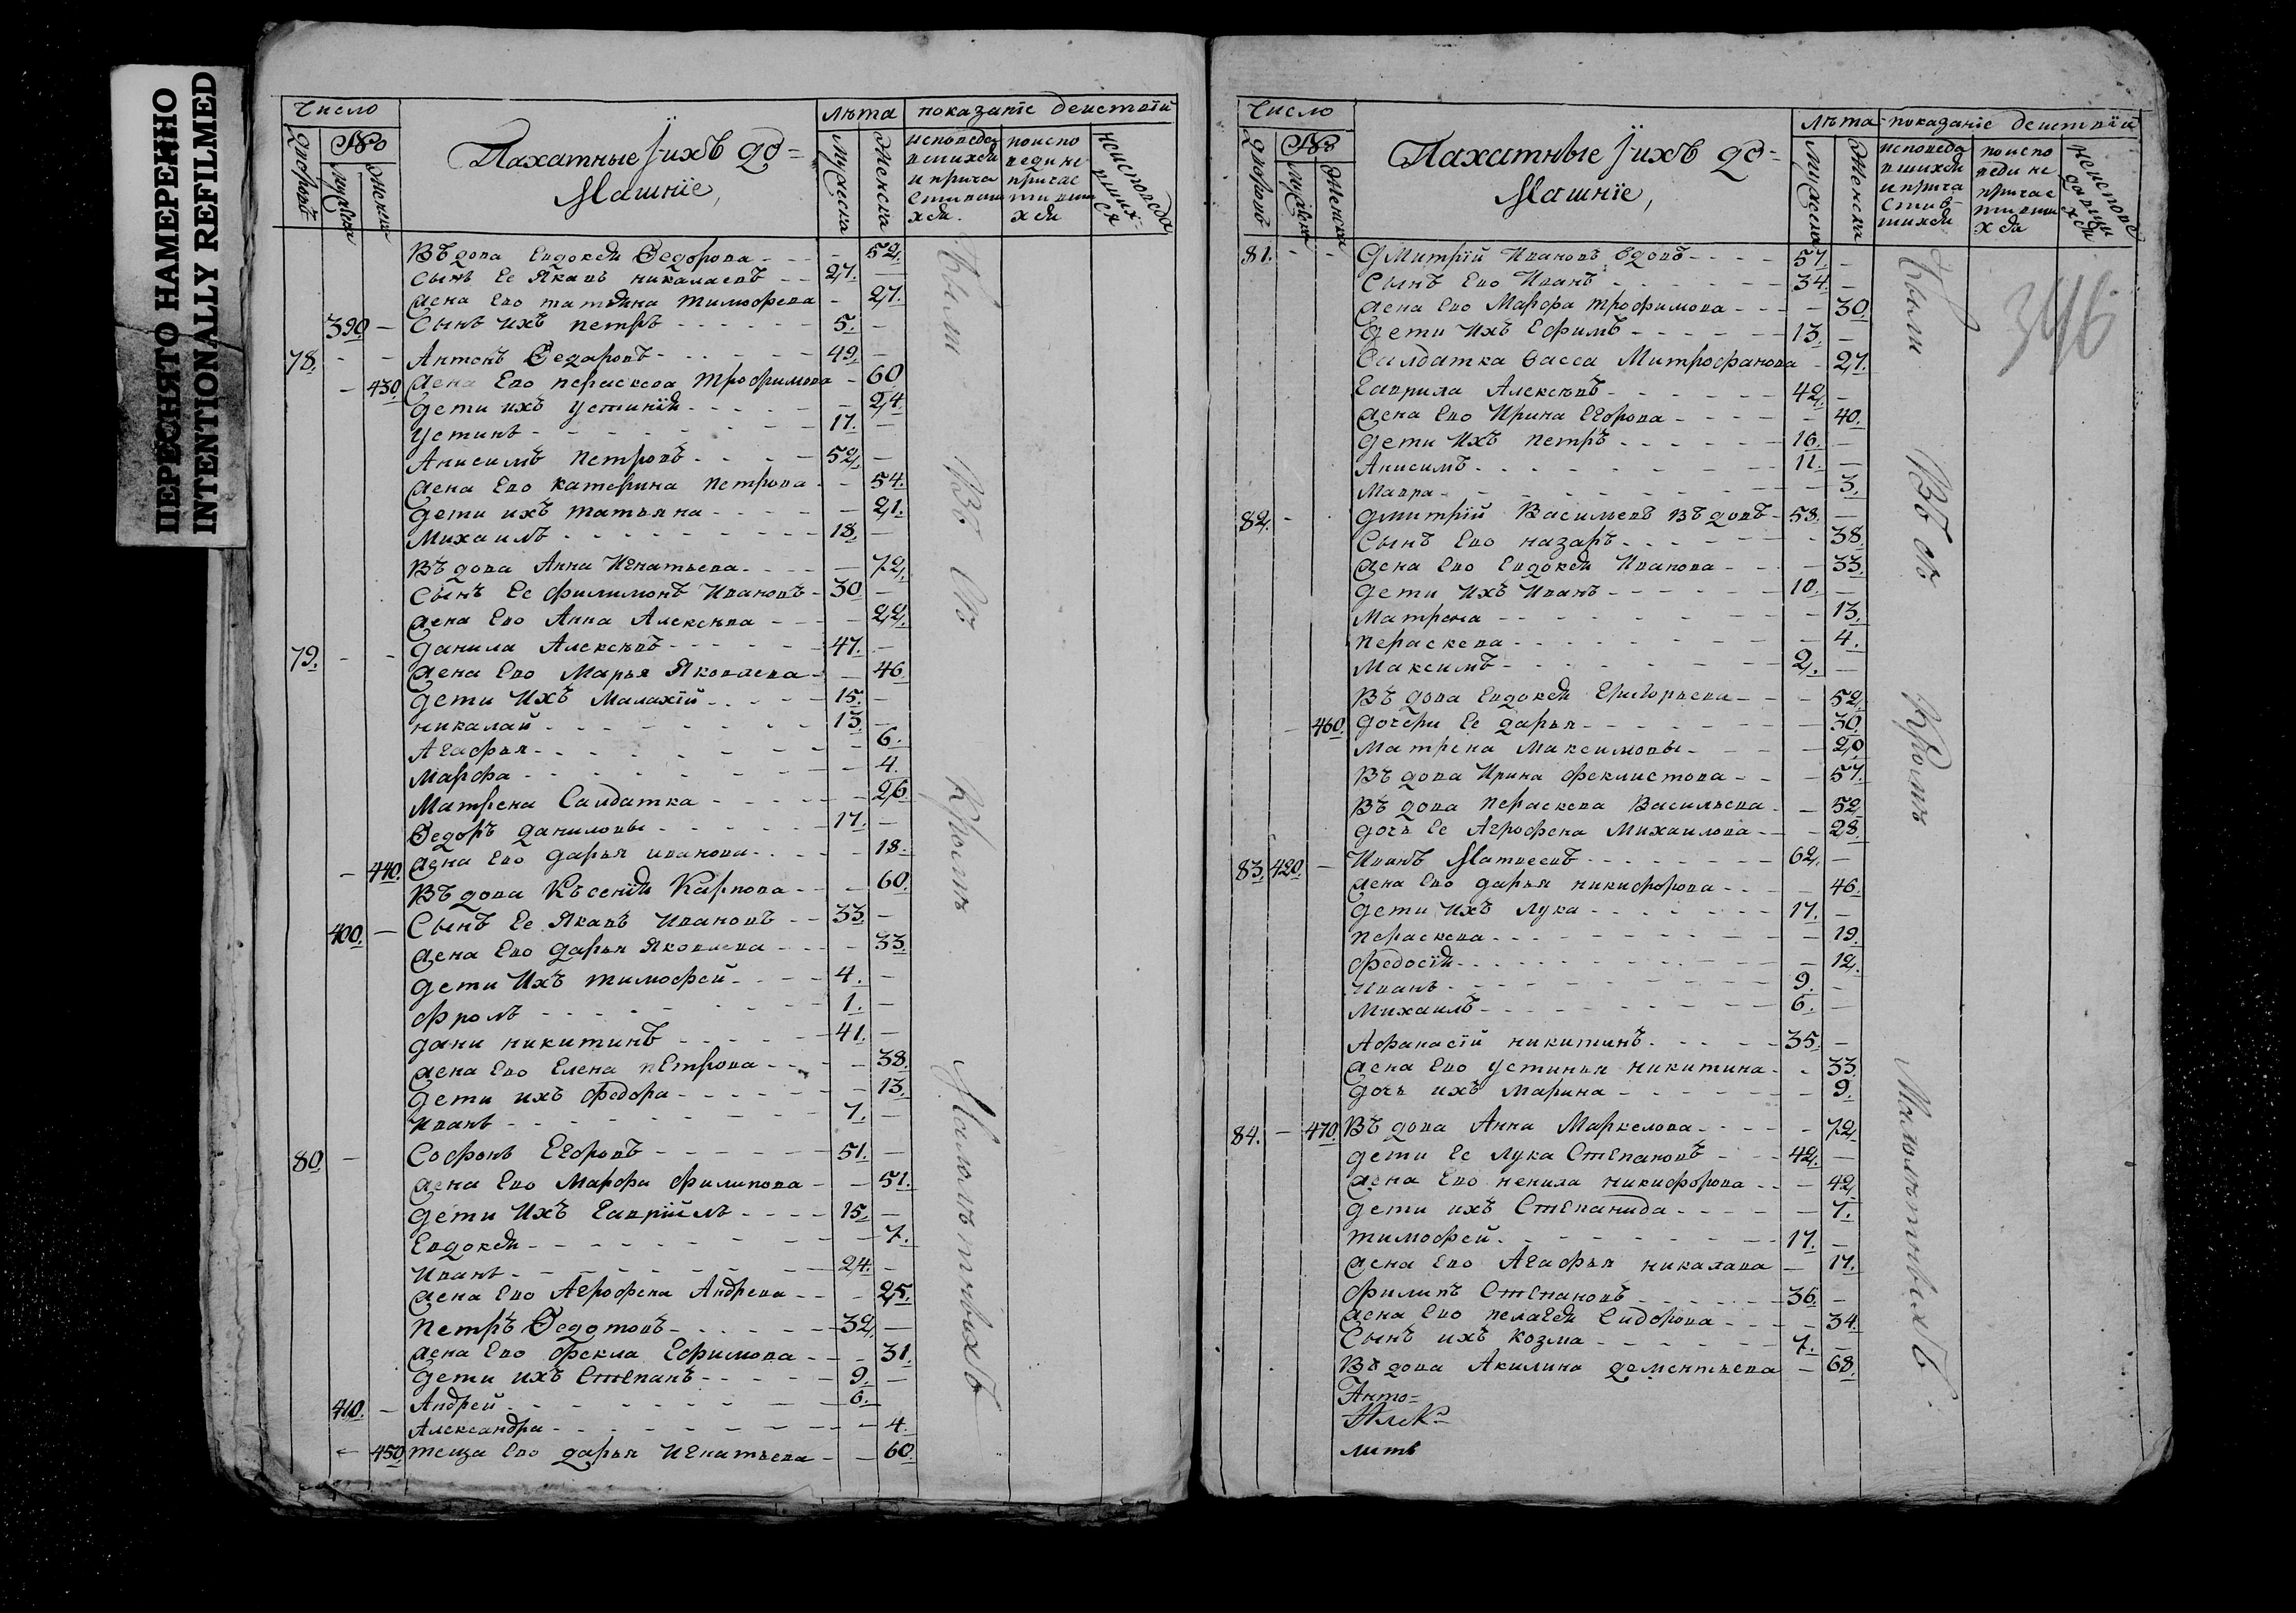 ПЕРЕСНЯТО НАМЕРЕННО
INTENTIONALLY REFILMED
Число
Лѣта
показание деиствiй
№
дворовъ
мужска
женска
Пахатные i ихъ до-
машнiе,
мужеска
женска
исповедо
вшихся
и прича
стивши
хся.
поиспо
веди не
причас
тивши
хся
неисповедо
вших-
ся
Въдова Евдокея Ѳедорова - - - 52.
Сынъ Ее Якавъ никалаевъ - - 27. -
жена Ево татьяна тимофеева - 27.
390 - Сынъ ихъ петръ - - - 5. -
78. - - Антонъ Ѳедаровъ - - - 49. -
- 430. жена Ево пераскева трофимова - 60
дети ихъ устинiя - - - 24.
устинъ - - - 17. -
Анисимъ петровъ - - - 52. -
жена Ево катерина петрова - - 54.
дети ихъ татьяна - - - 21.
михаилъ - - - 18. -
Въдова Анна Игнатьева - - - 72.
Сынъ Ее филимонъ Ивановъ - 30 -
жена Ево Анна Алексѣва - - - 22.
79. - - данила Алексѣвъ - - - 47. -
жена Ево Марья Яковлева - - 46.
дети Ихъ Малахiй - - - 15. -
никалай - - - 13. -
Агафья - - - 6.
Марфа - - - 4.
Матрена Салдатка - - - 26
Ѳедоръ даниловы - - - 17. -
- 440. жена Ево дарья иванова - - - 18.
Въдова Къcенiя Карпова - - - 60.
400. - Сынъ Ее Якавъ Ивановъ - - 33. -
жена Ево дарья Яковлева - - - 33.
дети Ихъ тимофей - - - 4. -
фролъ - - - 1. -
дани никитинъ - - - 41. -
жена Ево Елена пЕтрова - - - 38.
дети ихъ федора - - - 13.
иванъ - - - 7. -
80. - Софонъ Егоровъ - - - 51. -
жена Ево Марфа филипова - - 51.
дети Ихъ Гаврiилъ - - - 15. -
Евдокея - - - 7.
иванъ - - - 24. -
жена Ево Агрофена Андрева - - - 25.
петръ Ѳедотовъ - - - 32. -
жена Ево фекла Ефимова - - - 31.
дети ихъ Степанъ - - - 9. -
410. - Андрей - - - 6. -
Александра - - - 4.
- 450. теща Ево дарья Игнатьева - - 60.
были
Во
Кромѣ
Малолѣтныхъ
Число
Лѣта
показание деистивiй
№
дворовъ
мужска
женска
Пахатные i ихъ до-
машнiе,
мужеска
женска
исповедо
вшихся
и прича
стив-
шихся
поиспо
веди не
причас
тивши
хся
неиспове
давши
хся
346
81. - - дмитрiй Ивановъ вдовъ - - - 57. -
Сынъ Ево Иванъ - - - 34. -
жена Ево Марфа трофимова - - - 30.
дети Ихъ Ефимъ - - - 13. -
Салдатка васса Митрофанова - 27.
гаврила Алексѣвъ - - - 42. -
жена Ево Ирина Егорова - - - 40.
дети Ихъ петръ - - - 16. -
Анисимъ - - - 11. -
мавра - - - 3.
82. - дмитрiй Васильевъ Въдовъ - 58. -
Сынъ Ево назаръ - - - 38.
жена Ево Евдокея Иванова - - - 33.
дети Ихъ Иванъ - - - 10. -
Матрена - - - 13.
пераскева - - - 4.
Максимъ - - - 2. -
Въдова Евдокея григорьева - - - 52.
- 460. дочери Ее дарья - - - 30.
матрена максимовы - - - 20
Въдова Ирина феклистова - - - 57.
Въдова пераскева Васильева - - 52.
дочь Ее Агрофена Михаилова - - - 28.
83. 420. - Иванъ Матвеевъ - - - 62. -
жена Ево дарья никифорова - - - 46.
дети Ихъ лука - - - 17. -
пераскева - - - 19.
федосiя - - - 12.
иванъ - - - 9. -
михаилъ - - - 6. -
Афанасiй никитинъ - - - 35. -
жена Ево устинья никитина - - 33.
дочь ихъ марина - - - 9.
84. - 470. Въдова Анна Маркелова - - - 72.
дети Ее лука Степановъ - - - 42. -
жена Ево ненила никифорова - - - 42.
дети ихъ Степанида - - - 7.
тимофей - - - 17. -
жена Ево Агафья никалава - 17.
филипъ Степановъ - - - 36. -
жена Ево пелагея Сидорова - - - 34.
Сынъ ихъ козма - - - 7. -
Въдова Акилина дементьева - 68.
Анто-
Алек-
лить
были
Во
Кромѣ
Малолѣтныхъ